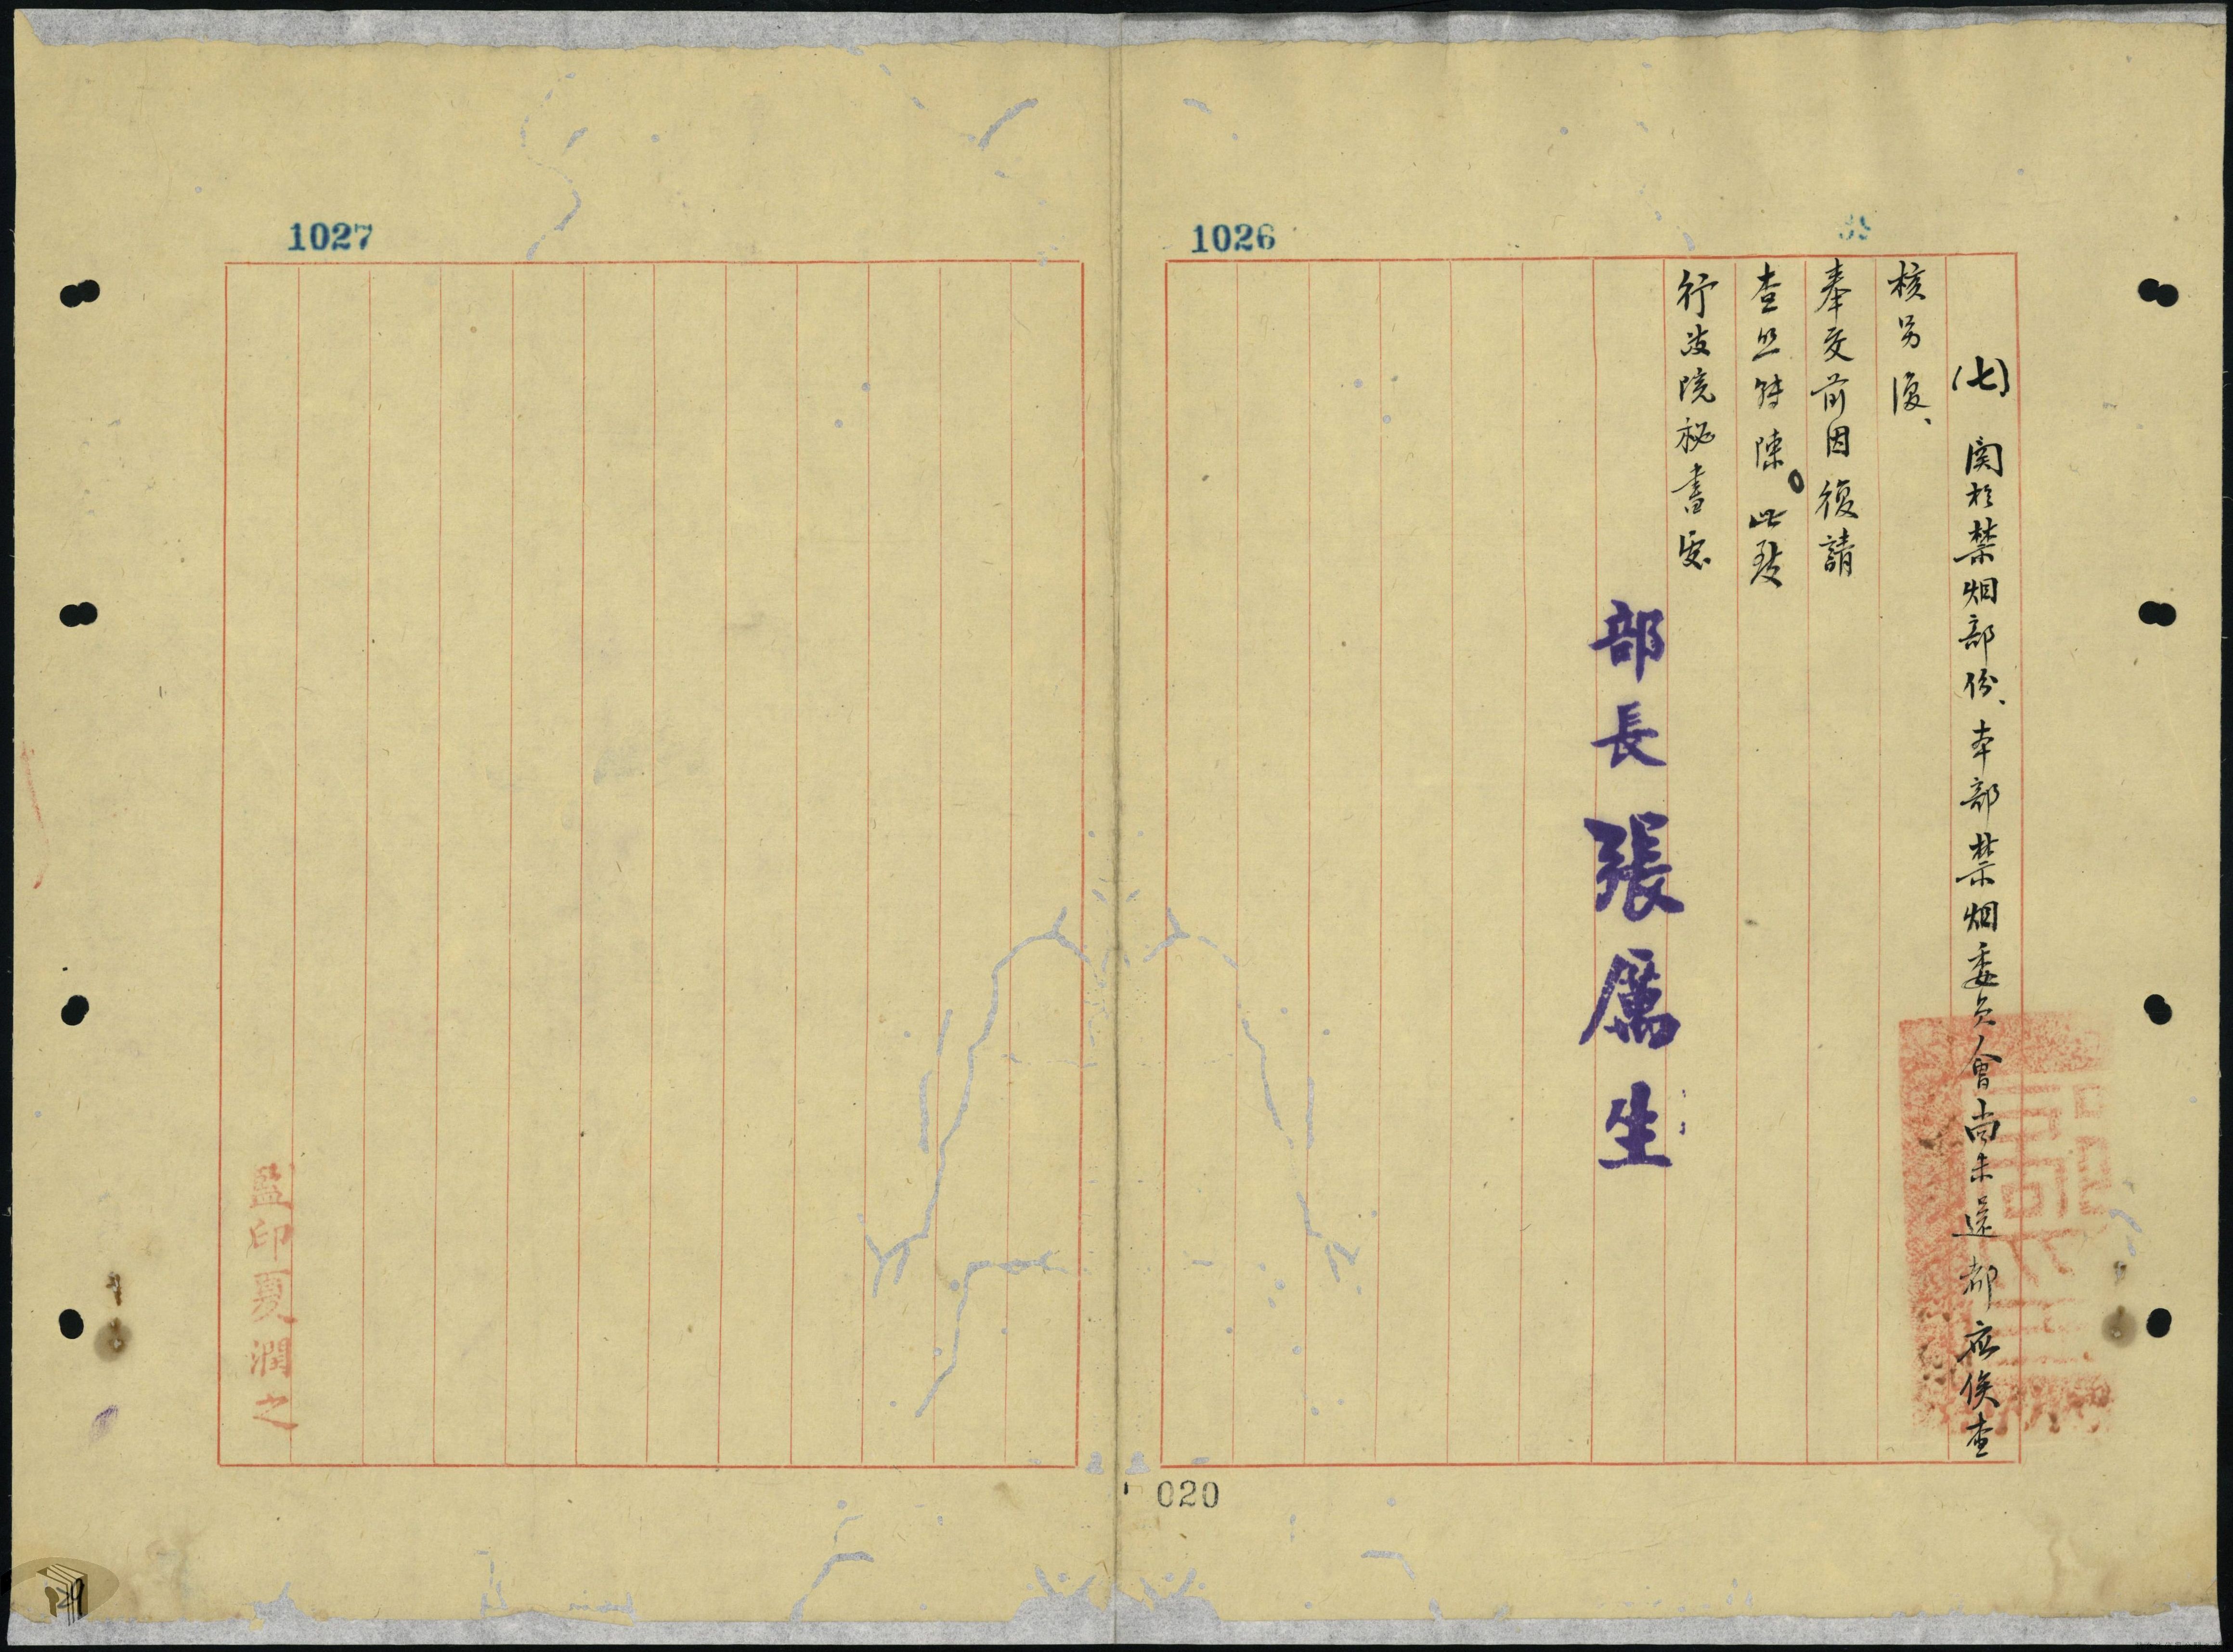 (七)關於禁烟部份、本部禁烟委員會尚未還都應俟查
核另復、
奉交前因復請
查照轉陳。此致
行政院秘書處
部長張厲生
監印夏潤之
1026
1027
020